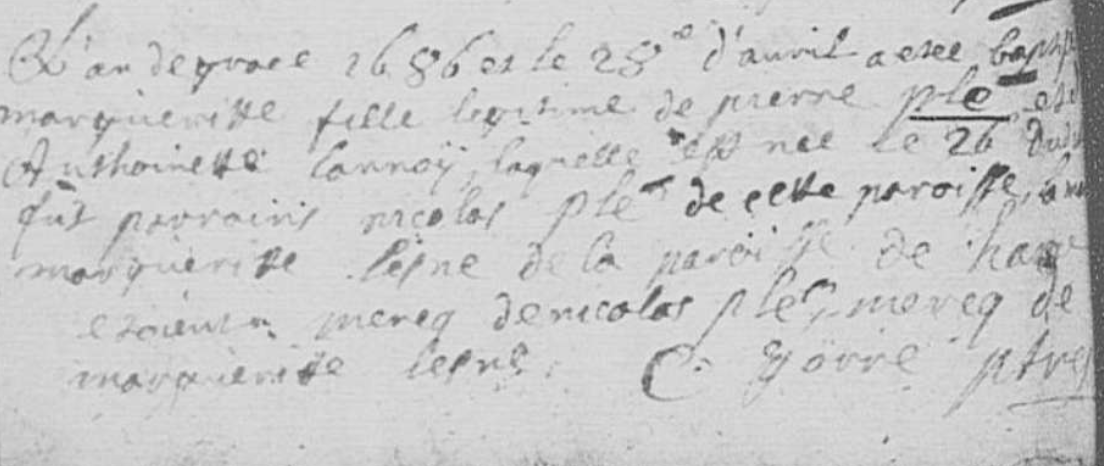 L'an de grace 1686 et le 28e d'avril a esté bapt
margueritte fille legitime de pierre plé et
Anthoinette lannoÿ, laquelle est née le 26 dud
fut parrains nicolas plé de cette paroisse, la
margueritte lesne de la paroisse de
mercq de nicolas plé, mercq de
margueritte lesne. C. Yorre ptre